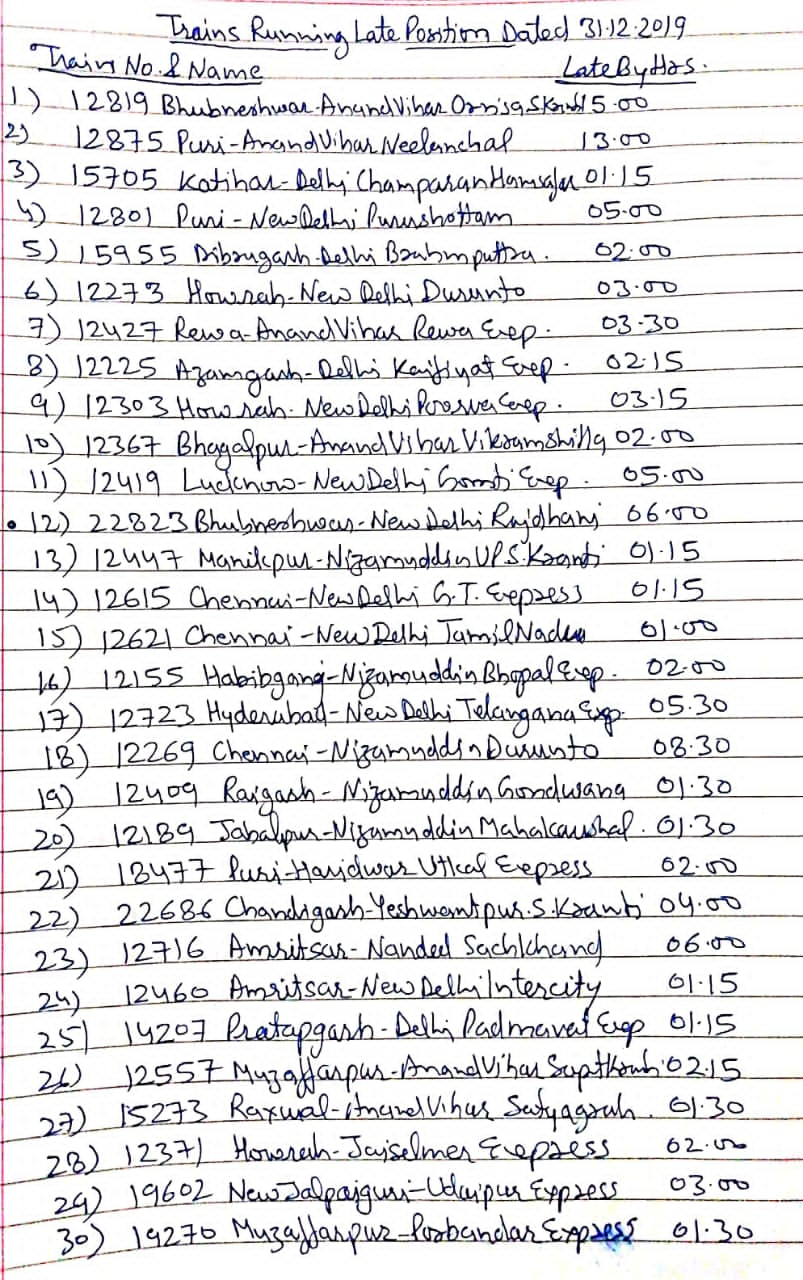 Trains Running Late Position Dated 31.12.2019
Train No. & Name Late By Hrs.
1) 12819 Bhubneshwar-Anand Vihar Orrisa S Kranti 15.00
2) 12875 Puri-Anand Vihar Neelanchal 13.00
3) 15705 Katihar-Delhi Champaran Hamsafar 01.15
4) 12801 Puri-New Delhi Purushottam 05.00
5) 15955 Dibrugarh-Delhi Brahmputtra. 02.00
6) 12273 Howrah-New Delhi Duronto 03.00
7) 12427 Rewa-Anand Vihar Rewa Exp. 03.30
8) 12225 Azamgarh-Delhi Kaifiyat Exp. 02.15
9) 12303 Howrah-New Delhi Poorva Exp. 03.15
10) 12367 Bhagalpur-Anand Vihar Vikramshilla 02.00
11) 12419 Lucknow-New Delhi Gomti Exp. 05.00
12) 22823 Bhubneshwar-New Delhi Rajdhani 06.00
13) 12447 Manikpur-Nizamuddin UP S.Kranti 01.15
14) 12615 Chennai-New Delhi G.T. Express 01.15
15) 12621 Chennai-New Delhi Tamil Nadu 01.00
16) 12155 Habibganj-Nizamuddin Bhopal Exp. 02.00
17) 12723 Hyderabad-New Delhi Telangana Exp. 05.30
18) 12269 Chennai-Nizamuddin Duronto 08.30
19) 12409 Raigarh-Nizamuddin Gondwana 01.30
20) 12189 Jabalpur-Nizamuddin Mahakaushal. 01.30
21) 18477 Puri-Haridwar Utkal Express 02.00
22) 22686 Chandigarh-Yeshwantpur.S.Kranti 04.00
23) 12716 Amritsar-Nanded Sachkhand 06.00
24) 12460 Amritsar-New Delhi Intercity 01.15
25) 14207 Pratapgarh-Delhi Padmavat Exp 01.15
26) 12557 Muzaffarpur-Anand Vihar Sapt Kranti 02.15
27) 15273 Raxual-Anand Vihar Satyagrah. 01.30
28) 12371 Howrah-Jaiselmer Express 02.00
29) 19602 New Jalpaiguri-Udaipur Express 03.00
30) 19270 Muzaffarpur-Porbandar Express 01.30